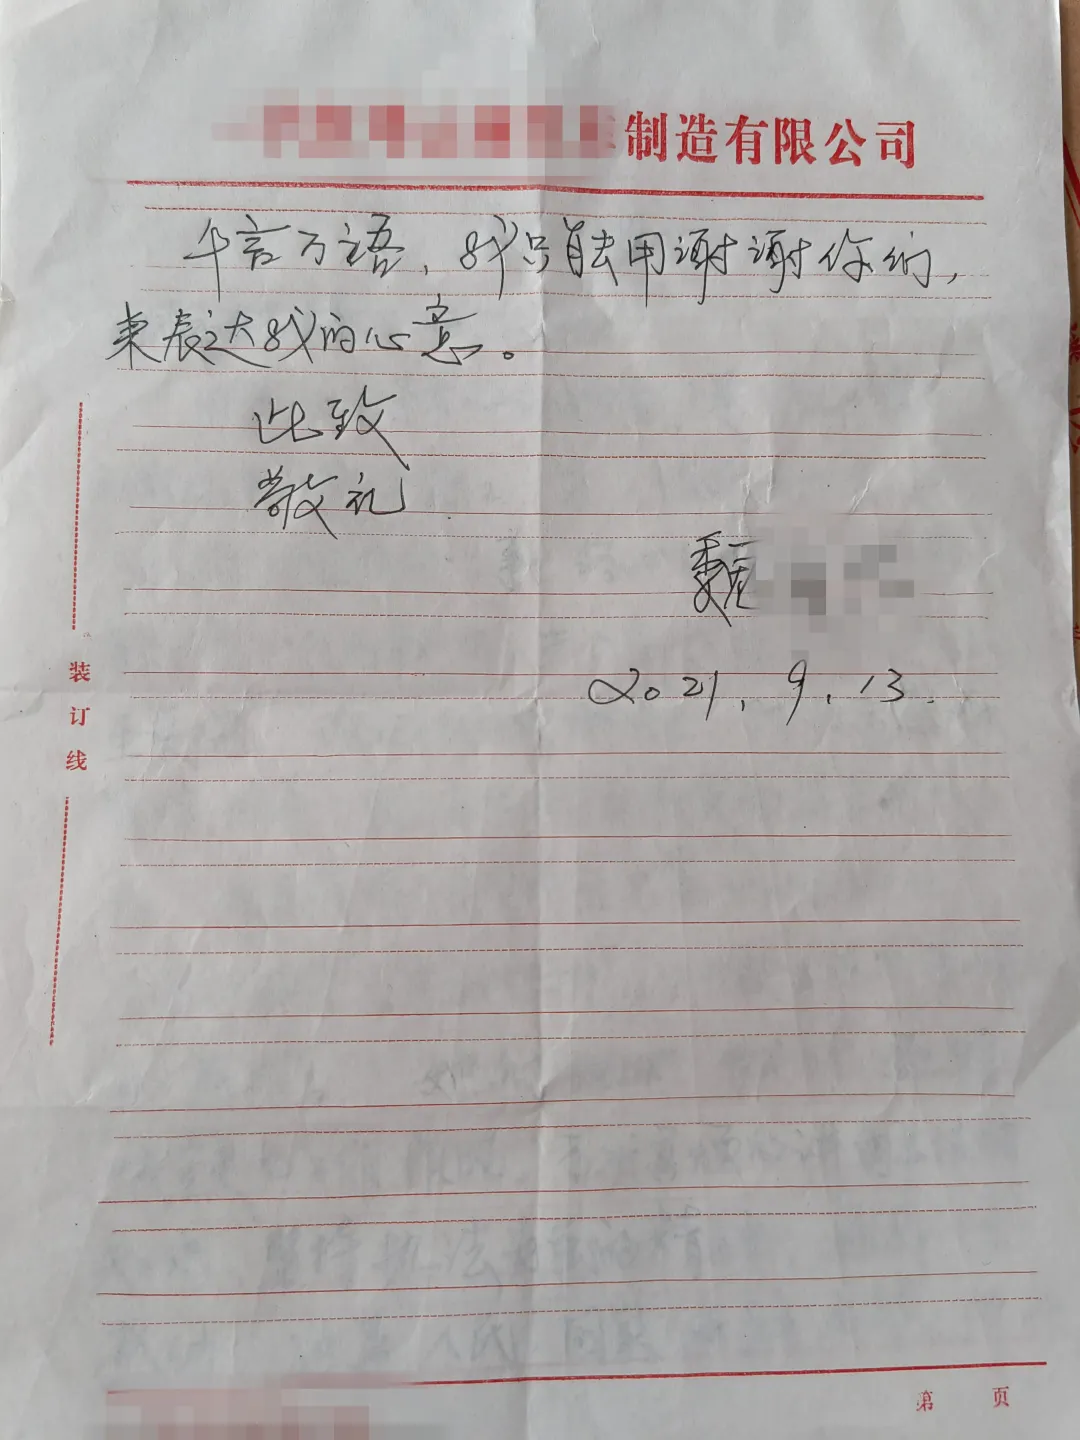 制造有限公司
千言万语，我只能用谢谢你们，
来表达我的心意。
此致
敬礼
魏
2021.9.13.
装订线
第 页